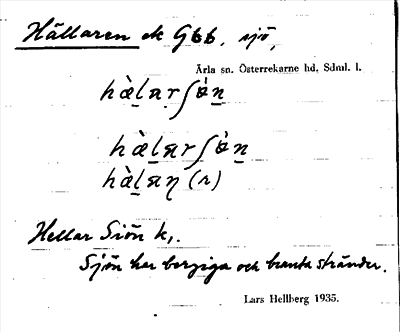 Hällaren ek Gbb, sjö,
Ärla sn. Österrekarne hd. Sdml. l.
hæ̀l̠arʃɷ̀n̠
hæ̀l̠arʃɷ̀n̠
hæ̀l̠aη (r)
Hellar Siön k,.
Sjön har bergiga och branta stränder.
Lars Hellberg 1935.